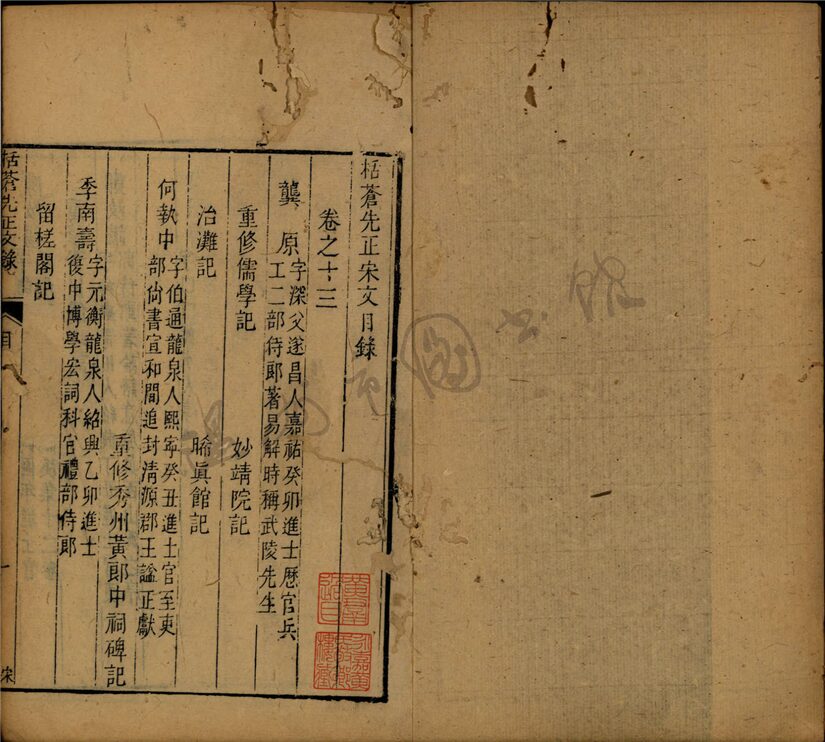 栝蒼先正宋文目錄
卷之十三
龔　原字深父遂昌人嘉祐癸卯進士歷官兵
工二部侍郎著易解時稱武陵先生
重修儒學記　妙靖院記
治灘記　睎眞館記
何執中字伯通龍泉人熙寧癸丑進士官至吏
部尙書宣和間追封清源郡王謚正獻
重修秀州黃郎中祠碑記
季南壽字元衡龍泉人紹興乙卯進士
復中博學宏詞科官禮部侍郎
留槎閣記
栝蒼先正文錄
目
一
宋
圖書館